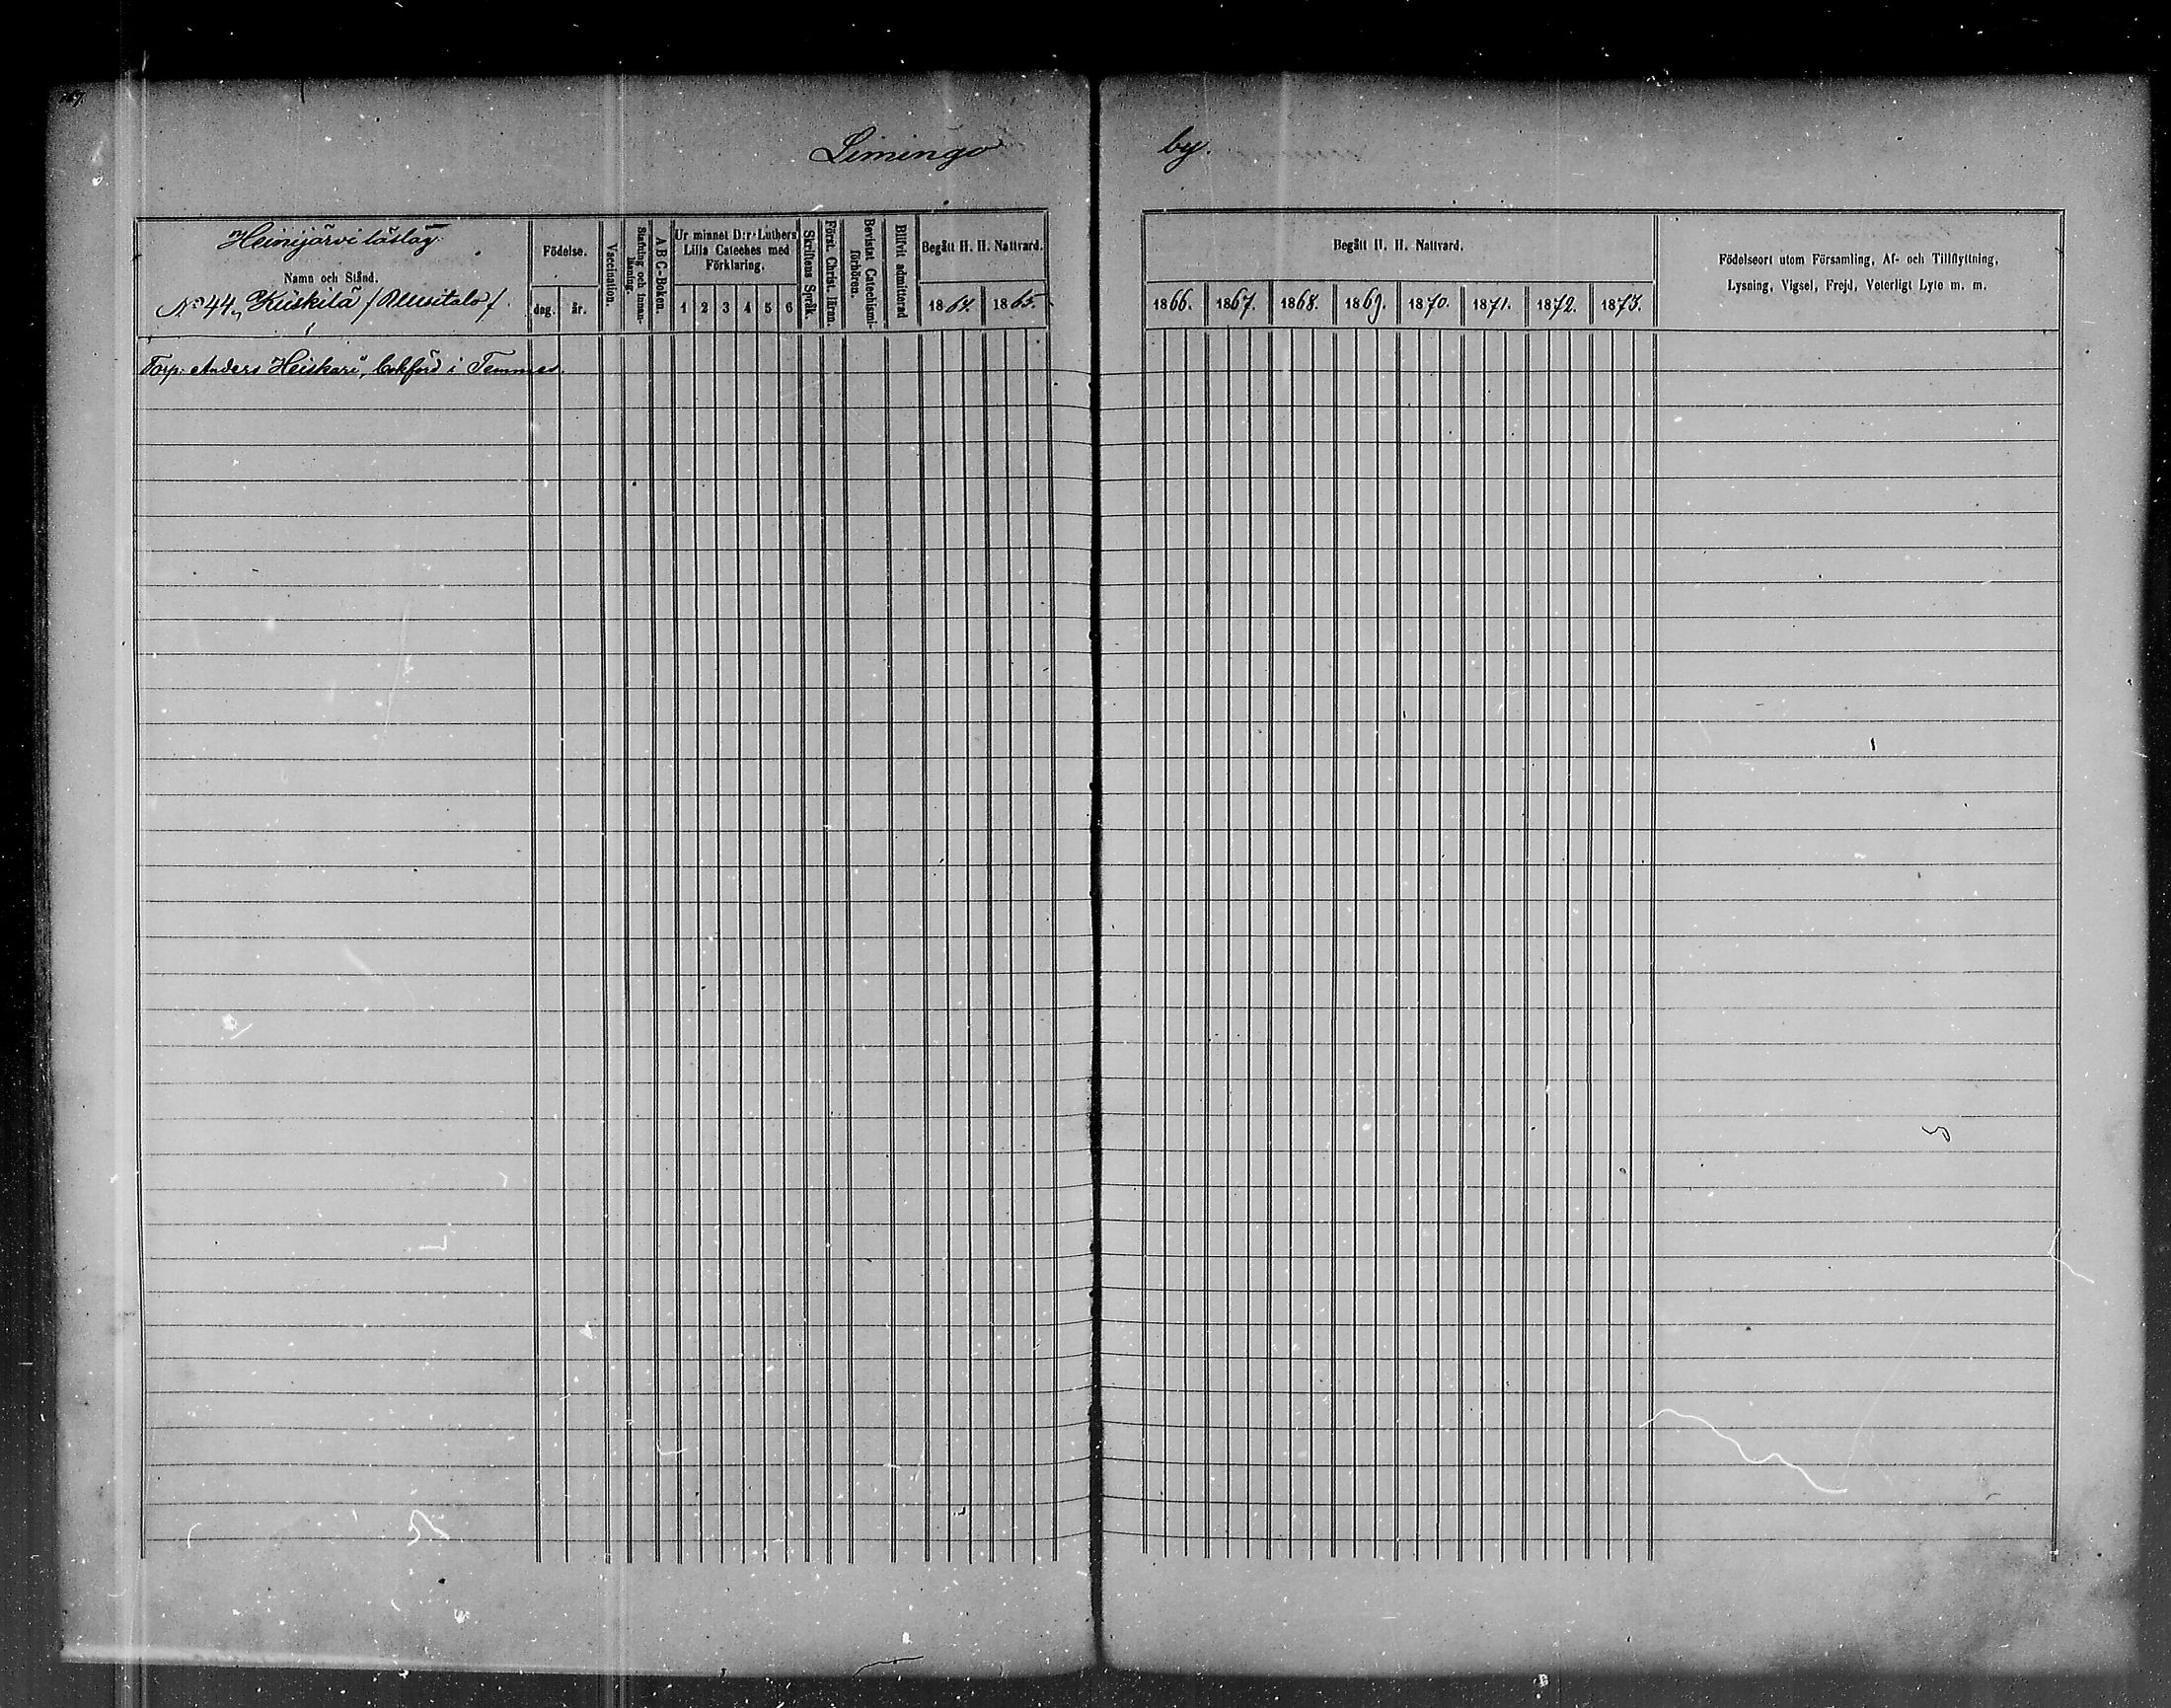 Limingo by.
Heinijärvi läslag.
Namn och Stånd.
No 44, Kiiskilä / Uusitalo /.
Födelse.
dag. år.
Vaccination.
Stafning och innan-läsning.
A B C-Boken.
Ur minnet D:r Luthers
Lilla Cateches med
Förklaring.
1 2 3 4 5 6
Skriftens Språk.
Först. Christ. läran.
Bevistat Catechismi-förhören.
Blifvit admitterad
Begått H. H. Nattvard.
1864. 1865.
Begått H. H. Nattvard.
1866. 1867. 1868. 1869. 1870. 1871. 1872. 1873.
Födelseort utom Församling, Af- och Tillflyttning,
Lysning, Vigsel, Frejd, Veterligt Lyte m. m.
Torp. Anders Heiskari, bokförd i Temmes.